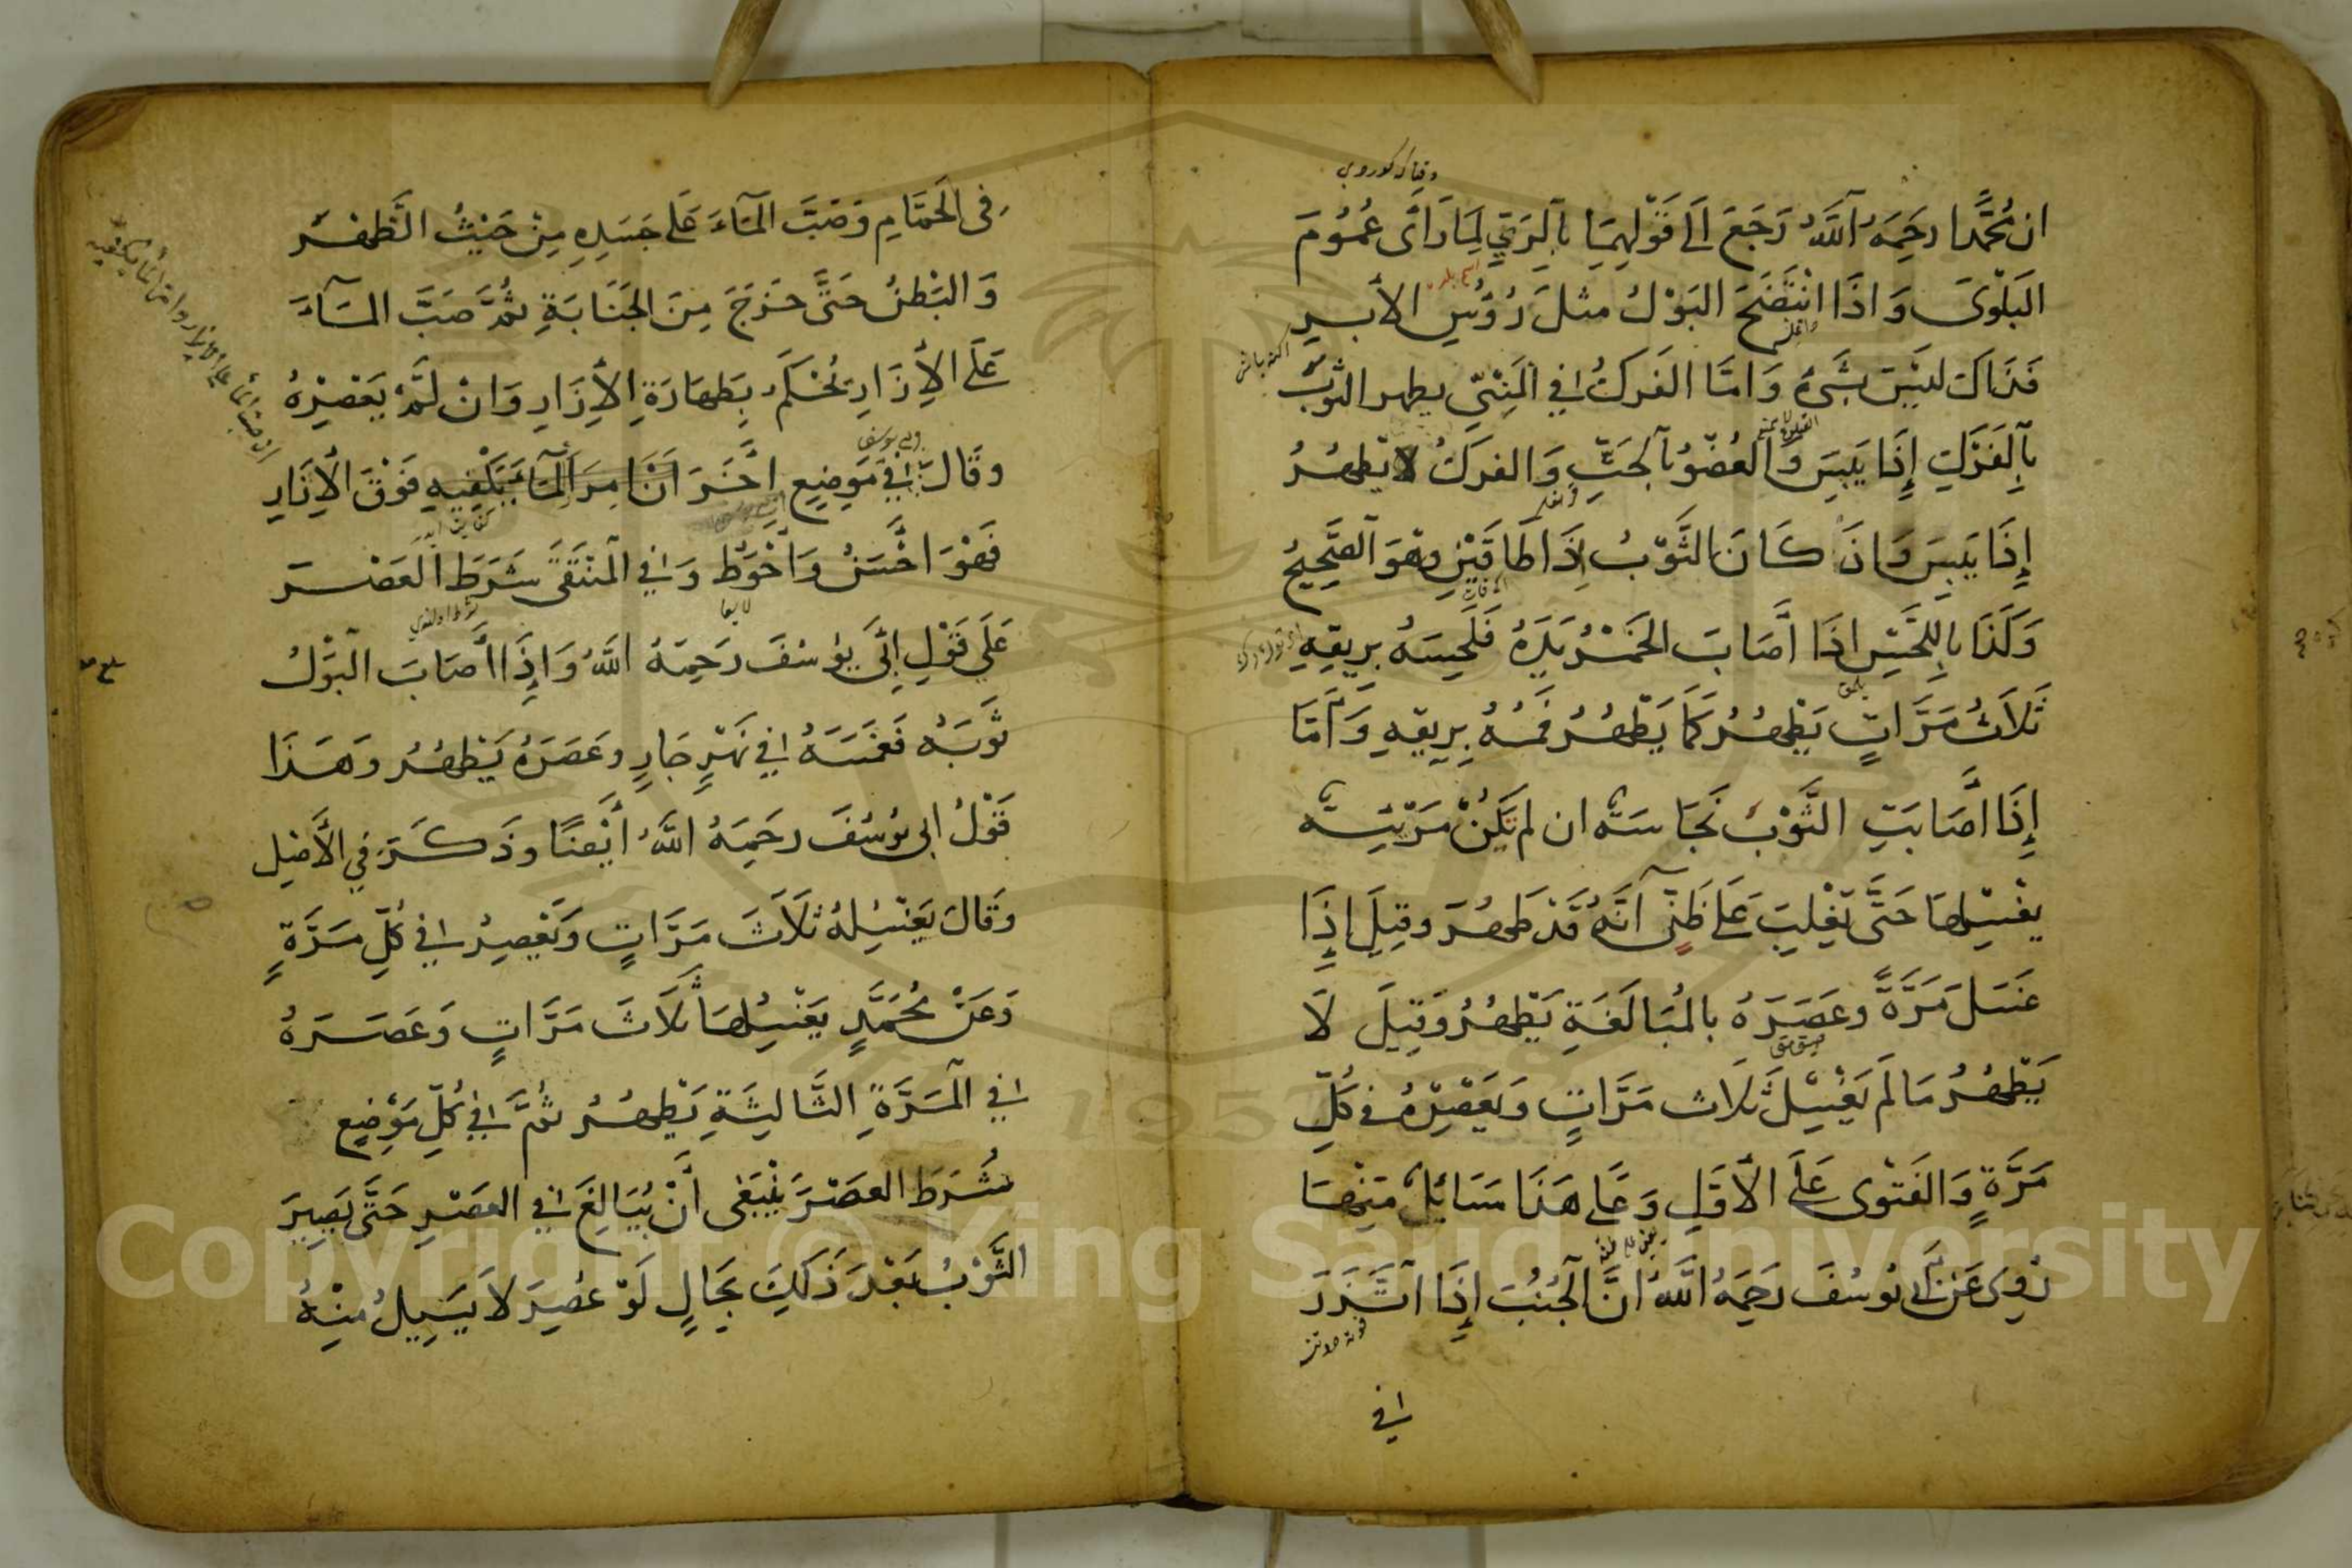 ان مُحَمَّدا رحَمِهُ اَللَّهُ رَجَعَ اَلَى قَوْلِهِمَا بآلرَيِّ لِمَا رَاَى عُمُومَ
البَلْوَى وَ اذَا انْتَضَحَ البَوْلُ مثلَ رُؤُسِ الأبر
فَذَاكَ لَيْسَ بِشَىْءٍ وَ امَّا الفَركُ فِي الَمنِىّ يطهر الثوبُ
بِآلفَرَكِ إِذَا يَبِسَ وَالعُضْوُ بآلحَتِّ وَالفركُ لا يَطْهُرُ
إِذَا يَبِسَ وَ اذَ كَانَ الثَّوْبُ ذَا طَاقَيْنِ وهَوَ آلصَّحِيحُ
وَكَذَا بِاللَّحْسِ اذَا اَصَابَ الخَمْرُ يَدَهُ فَلَحِسَهُ بِرِيقِهِ
ثَلاَثَ مَرَّاتٍ يَطْهُرُ كَمَا يَطْهُرُ فَمُهُ بِرِيقِهِ وَ اَمَّا
إِذَا اَصَابَتِ الثَّوْبَ نَجَاسَةٌ ان لم تَكُنْ مَرْئِيَّة
يغْسِلهَا حَتَّى يَغْلِبَ عَلَى ظَنِّى اَنَّهُ قَدْ طَهُرَ وقِيلَ إِذَا
غَسَلَ مَرَّةً وعَصَرَهُ بالمُبَالَغَةِ يَطْهُرُ وَقِيلَ لَا
يَطْهُرُ مَا لَم يَغْسِلَ ثَلاَث مَرَّاتٍ وَيَعْصِرْهُ فى كُلِّ
مَرَّةٍ وَالفَتْوى عَلَى الاَوَّلِ وَعَلى هَذَا مَسَائِلُ مِنْهَا
رُوِىَ عَن اَبى يُوسُفَ رَحِمَهُ اللَّهُ اَنَّ الجُنُبَ إِذَا اتَّزَرَ
فِي
فى الحَمَّامِ وَصَبَّ المَاءَ عَلَى جَسَدِهِ مِنْ حَيْثُ الظَهْر
وَ البَطْنُ حَتَّى خَرَجَ مِنَ الجَنَابَةِ ثُمَّ صَبَّ المَآءَ
عَلَى الإِزَارِ يُحْكَمُ بِطَهَارَةِ الإِزَارِ وَانْ لَمْ يَعْصِرْهُ
وقَالَ فِي مَوضِعٍ اخَرَ اَنَ اَمَرَ الْمَاءَ بِكَفَّيهِ فَوْقَ الاِزَارِ
فَهْوَ اَحْسَنُ وَاَحْوَطُ وَفِي المُنْتَقَى شَرَطَ العَصْر
عَلَى قَوْلِ اَبِى يوُسُفَ رَحِمَهُ اللَّهُ وَ اِذَا اَصَابَ البَوْلُ
ثَوبَهُ فَغَمَسَهُ فِي نَهْرٍ جَارٍ وعَصَرَهُ يَطْهُرُ وهَذَا
قَوْلُ ابى يوُسُفَ رحَمِهُ اللَّهُ اَيْضًا وذَكَرَ فِي الأَصْلِ
وقَالَ يَغْسِلهُ ثلاَثَ مَرَّاتٍ وَيَعْصِرُ فِي كُلِّ مَرَّةٍ
وَعَنْ مُحَمَّدٍ يَغْسِلهَا ثَلَاثَ مَرَّاتٍ وَعَصَرَهُ
فِي آلمَرَّةِ الثَّالِثَةِ يَطْهُرُ ثُمَّ فِي كُلِّ مَوْضِعٍ
شَرَطَ العصَرَ يَنْبَغِى اَنْ يُبَالِغَ فِي العَصْرِ حَتَّى يَصِيرَ
الثَّوْبُ بَعْدَ ذَلِكَ بِحَالٍ لَوْ عُصِرَ لاَ يَسِيلُ مِنْهُ
Copyright © King Saud University
1957